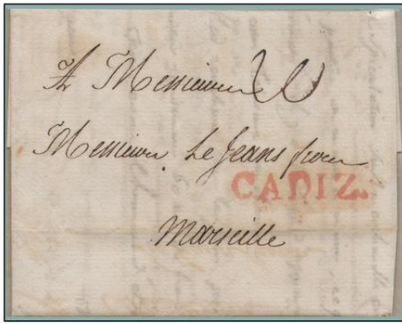 A Messieurs
Messieurs Le Jeans freres
CADIZ.
Marseille